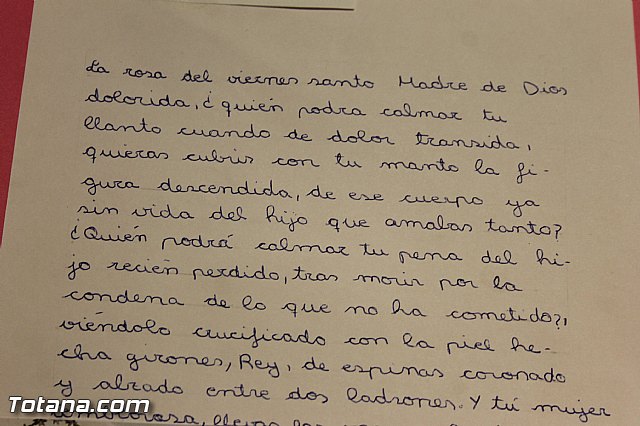 La rosa del viernes santo Madre de Dios
dolorida, ¿quién podra calmar tu
llanto cuando de dolor transida,
quieras cubrir con tu manto la fi-
gura descendida, de ese cuerpo ya
sin vida del hijo que amabas tanto?
¿Quién podrá calmar tu pena del hi-
jo recien perdido, tras morir por la
condena de lo que no ha cometido?,
viéndolo crucificado con la piel he-
cha girones, Rey, de espinas coronado
y alzado entre dos ladrones. Y tú mujer
Totana.com